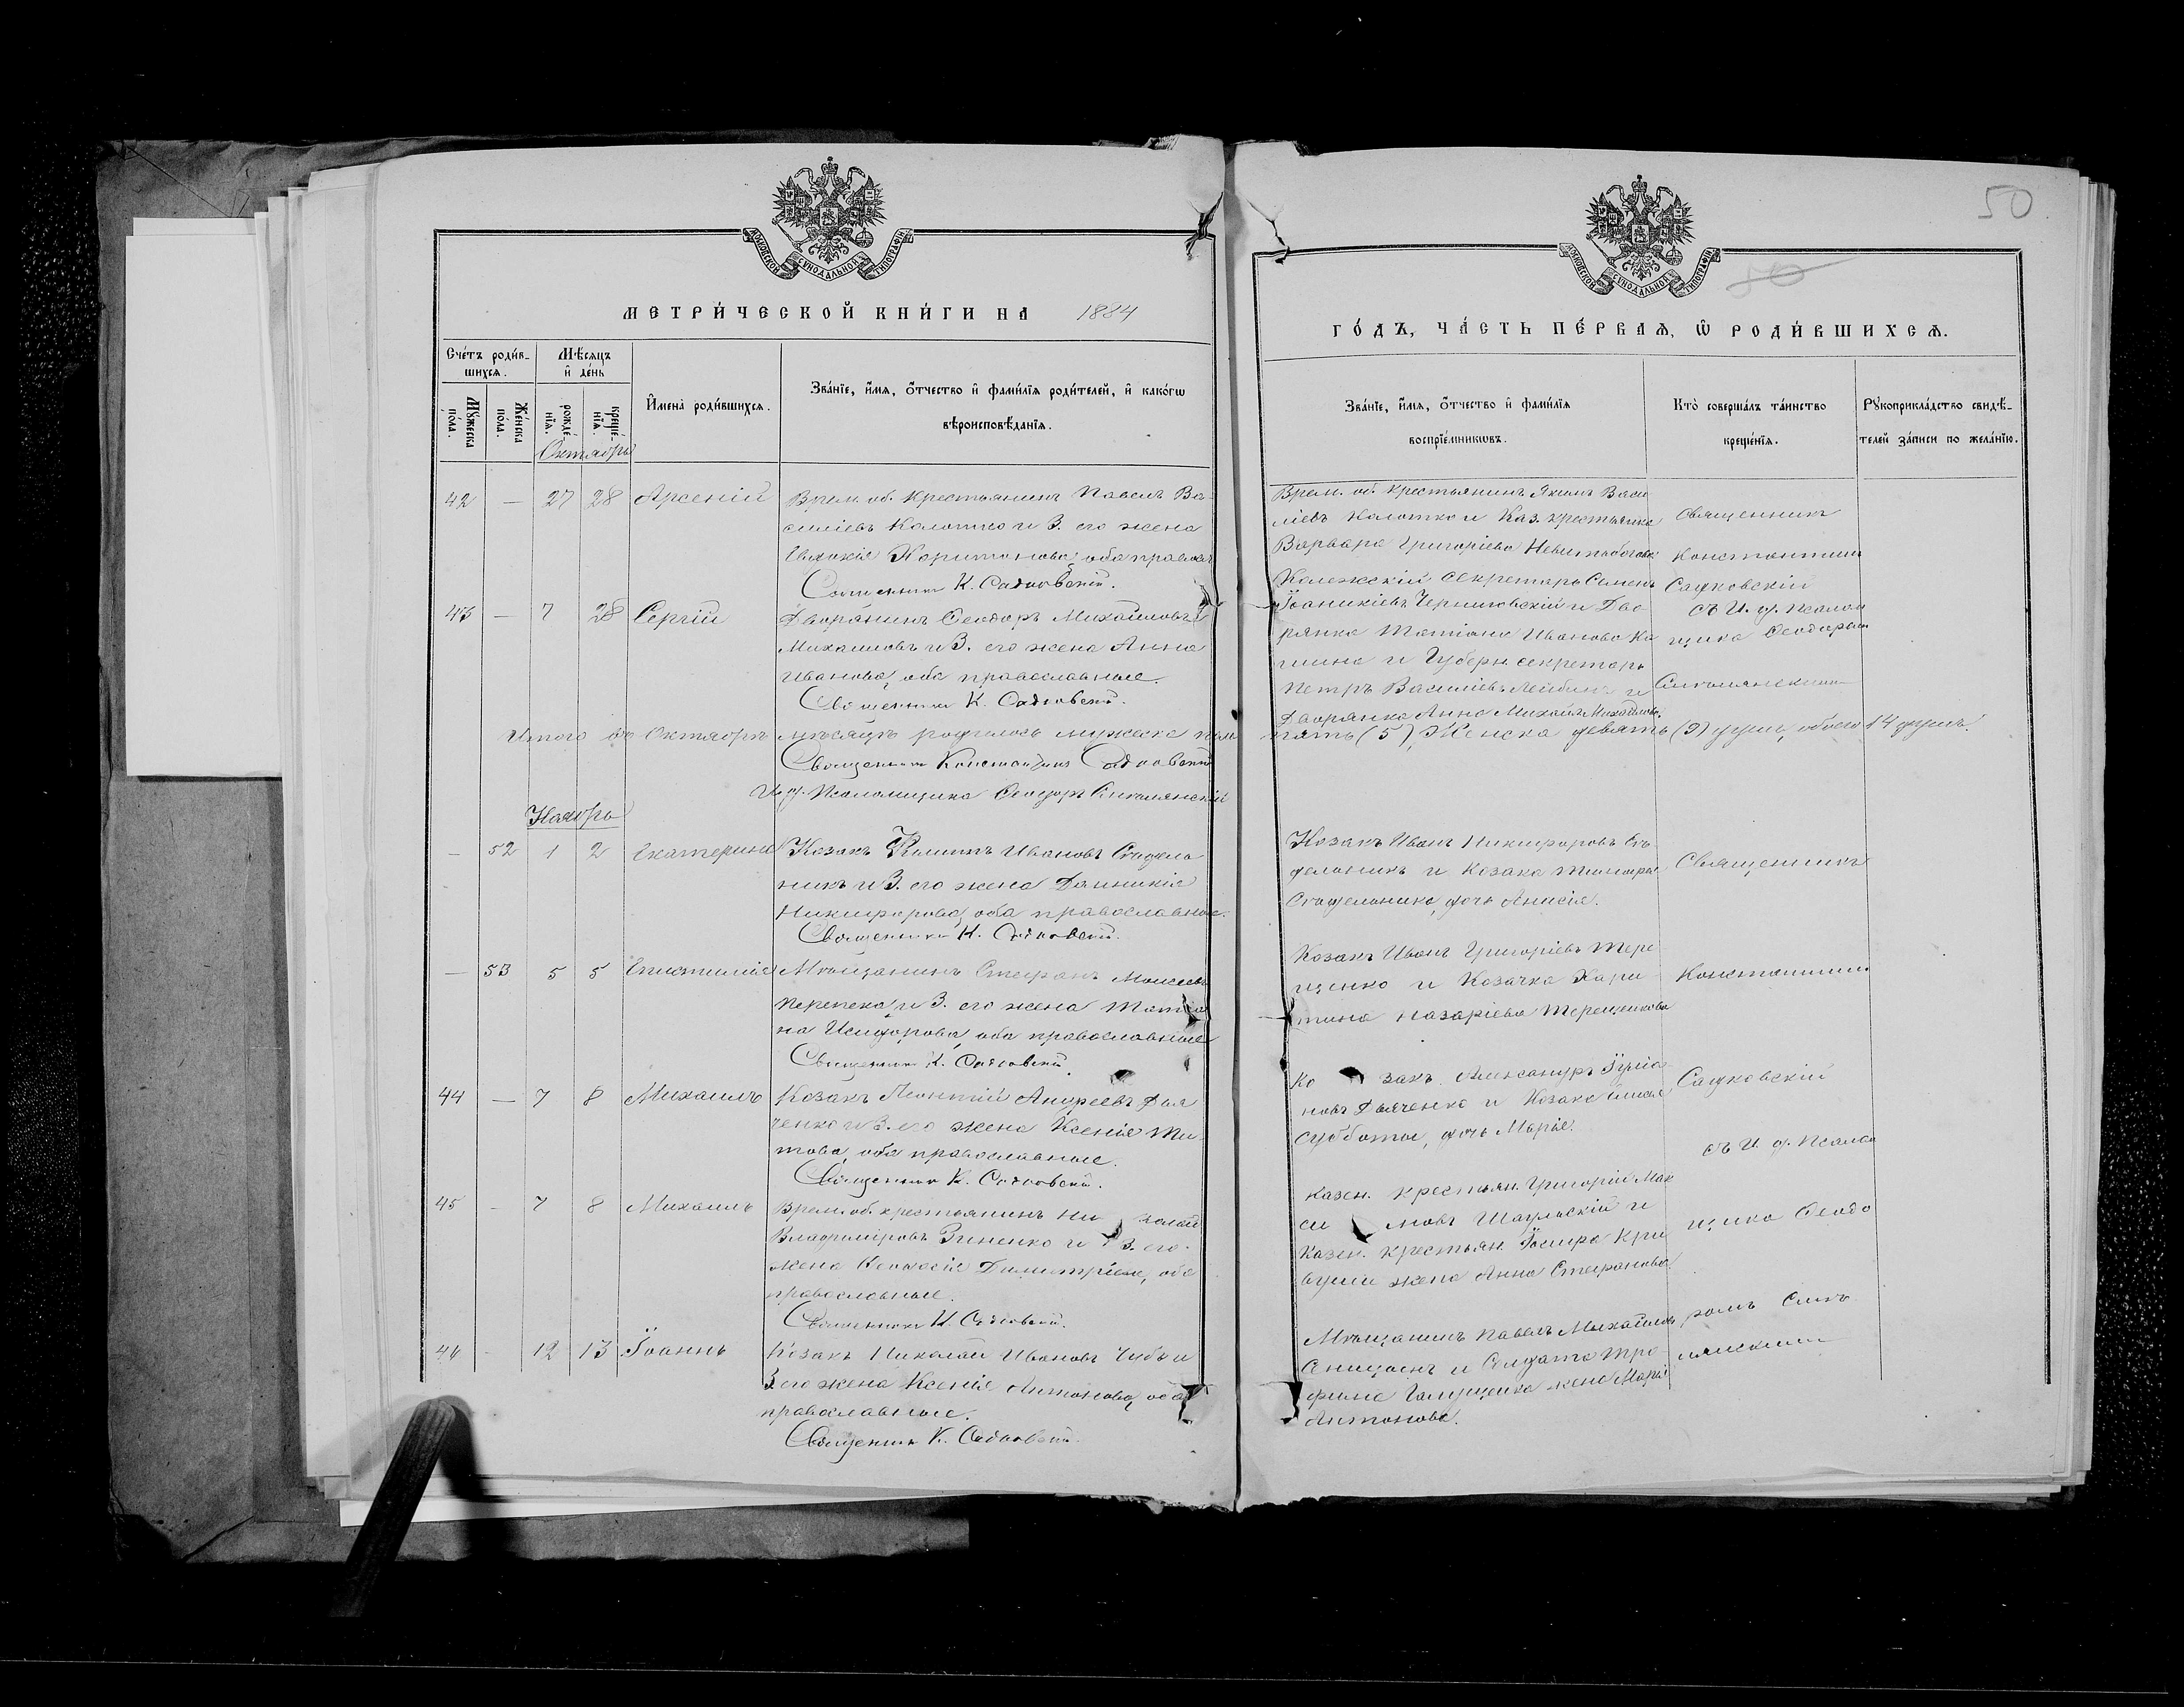 50
50
МОСКОВСКОЙ СѴНОДАЛЬНОЙ ТИПОГРАФІИ
МОСКОВСКОЙ СѴНОДАЛЬНОЙ ТИПОГРАФІИ
МЕТРИ́ЧЕСКОЙ КНИ́ГИ НА 1884
ГО́ДЪ, ЧА́СТЬ ПЕ́РВАѦ, Ѽ РОДИ́ВШИХСѦ.
Сче́тъ роди́в-
шихсѧ.
Мꙋжеска
по́ла.
Же́нска
по́ла.
Мѣ́сѧцъ
и҆ де́нь
рожде́-
нїѧ.
креще́-
нїѧ.
Октябрь
И҆мена̀ роди́вшихсѧ.
Зва́нїе, и҆́мѧ, ѻ҆́тчество и҆ фами́лїѧ роди́телей, и҆ како́гѡ
вѣроисповѣ́данїѧ.
Зва́нїе, и҆́мѧ, ѻ҆́тчество и҆ фами́лїѧ
воспрїе́мникѡвъ.
Кто̀ соверша́лъ та́инство
креще́нїѧ.
Рꙋкоприкла́дство свидѣ́-
телей за́писи по жела́нїю.
42 — 27 28 Арсеній
Врем. об. крестьянинъ Павелъ Ва-
силіевъ Калотко и З. его жена
Евдокія Харитонова, оба правосл
Священникъ К. Садковскій.
Врем. об. крестьянинъ Якимъ Васи
ліевъ Калотко и Каз. крестьянка
Варвара Григоріева
43 — 7 28 Сергій
Дворянинъ Ѳеодоръ Михайловъ
Михайловъ и З. его жена Анна
Иванова, оба православные.
Священникъ К. Садковскій.
Колежскій Секретарь Семенъ
Іоаникіевъ Черниховскій и Дво
рянка Татіана Иванова Ка
шина и Губерн. секретарь
Петръ Василіевъ и
Дворянка Анна Михайл. Михайлова.
Священникъ
Константинъ
Садковскій
съ И. д. Псалом
щика Ѳеодоромъ
Итого въ Октябрѣ мѣсяцѣ родилось мужеска пола
пять (5), Женска девять (9) душъ, обоего 14 душъ.
Священникъ Константинъ Садковскій
И. д. Псаломщика Ѳеодоръ
Ноябрь
— 52 1 2 Екатерина
Козакъ Филиппъ Ивановъ Стадель
никъ и З. его жена Домникія
Никифорова, оба православные.
Священникъ К. Садковскій.
Козакъ Иванъ Никифоровъ Ста
дельникъ и Козака
Стадельника, дочь Анисія.
Священникъ
— 53 5 5
Мѣщанинъ Стефанъ Моисеевъ
Перепека и З. его жена Татіа
на Исидорова, оба православные
Священникъ К. Садковскій.
Козакъ Иванъ Григоріевъ Тере
щенко и Козачка Хари
тина Назаріева Терещенкова
Константинъ
44 — 7 8 Михаилъ
Козакъ Леонтій Андреевъ Дья
ченко и З. его жена Ксенія Ти
това, оба православные.
Священникъ К. Садковскій.
Ко закъ Александръ
новъ Дьяченко и Козака
Субботы, дочь Марія.
Садковскій
съ И. д. Псалом
45 — 7 8 Михаилъ
Врем. об. крестьянинъ Ни колай
Владиміровъ Зиненко и З. его
жена Димитріева, оба
православные.
Священникъ К. Садковскій.
Казен. крестьян. Григорій Мак
си мовъ и
Казен. крестьян.
жена Анна Стефанова.
щика Ѳеодо
12 13 Іоаннъ
Козакъ Николай Ивановъ и
З его жена Ксенія Антонова, оба
православные.
Священникъ К. Садковскій.
Мѣщанинъ Павелъ Михайловъ
и Солдата Тро
фима жена Марія
Антонова.
ромъ